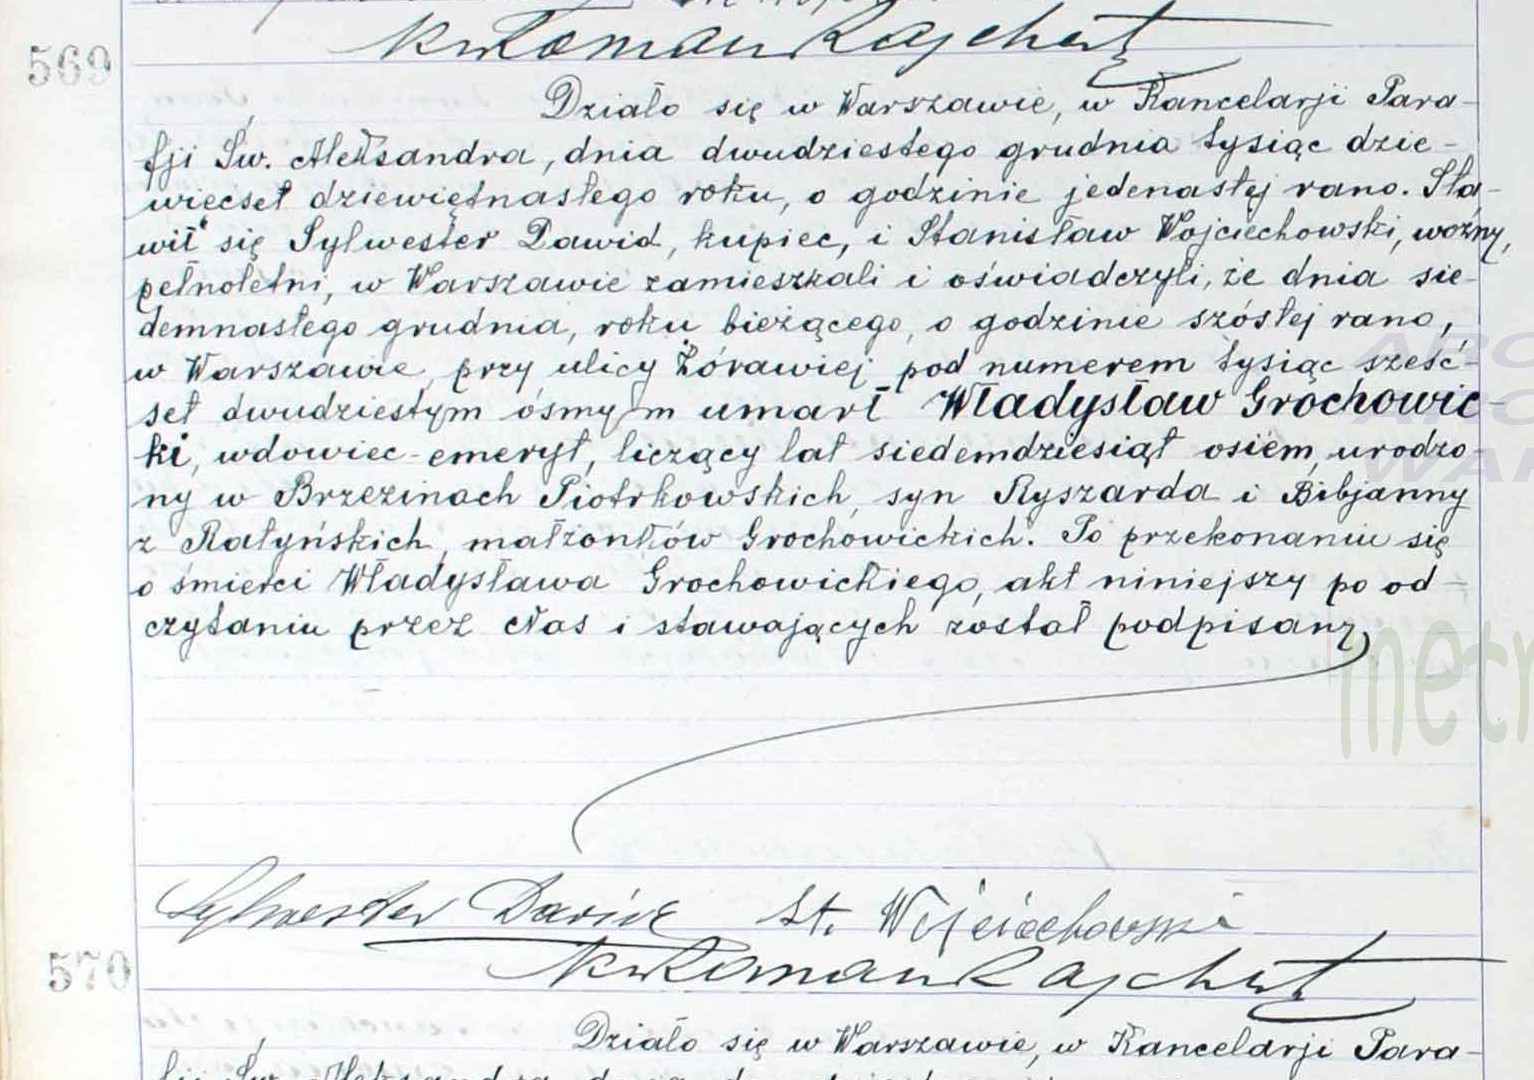 569
Ks Roman Rajchert
Działo się w Warszawie, w Kancelarji Para-
fji Św. Aleksandra, dnia dwudziestego grudnia tysiąc dzie-
więcset dziewiętnastego roku, o godzinie jedenastej rano. Sta-
wil się Sylwester Dawid, kupiec, i Stanisław Wojciechowski, woźny,
pełnoletni, w Warszawie zamieszkali i oświadczyli, że dnia sie-
demnastego grudnia, roku bieżącego, o godzinie szóstej rano,
w Warszawie, przy ulicy Żórawiej pod numerem tysiąc sześć-
set dwudziestym ósmym umarł Władysław Grochowic-
ki, wdowiec-emeryt, liczący lat siedemdziesiąt osiem, urodzo-
ny w Brzezinach Piotrkowskich, syn Ryszarda i Bibjanny
z Ratyńskich, małżonków Grochowickich. Po przekonaniu się
o śmierci Władysława Grochowickiego, akt niniejszy po od-
czytaniu przez Nas i stawających został podpisany
metr
Sylwester Dawid St. Wojciechowski
570
Ks Roman Rajchert
Działo się w Warszawie, w Kancelarji Para-
fji Św. Aleksandra, dnia